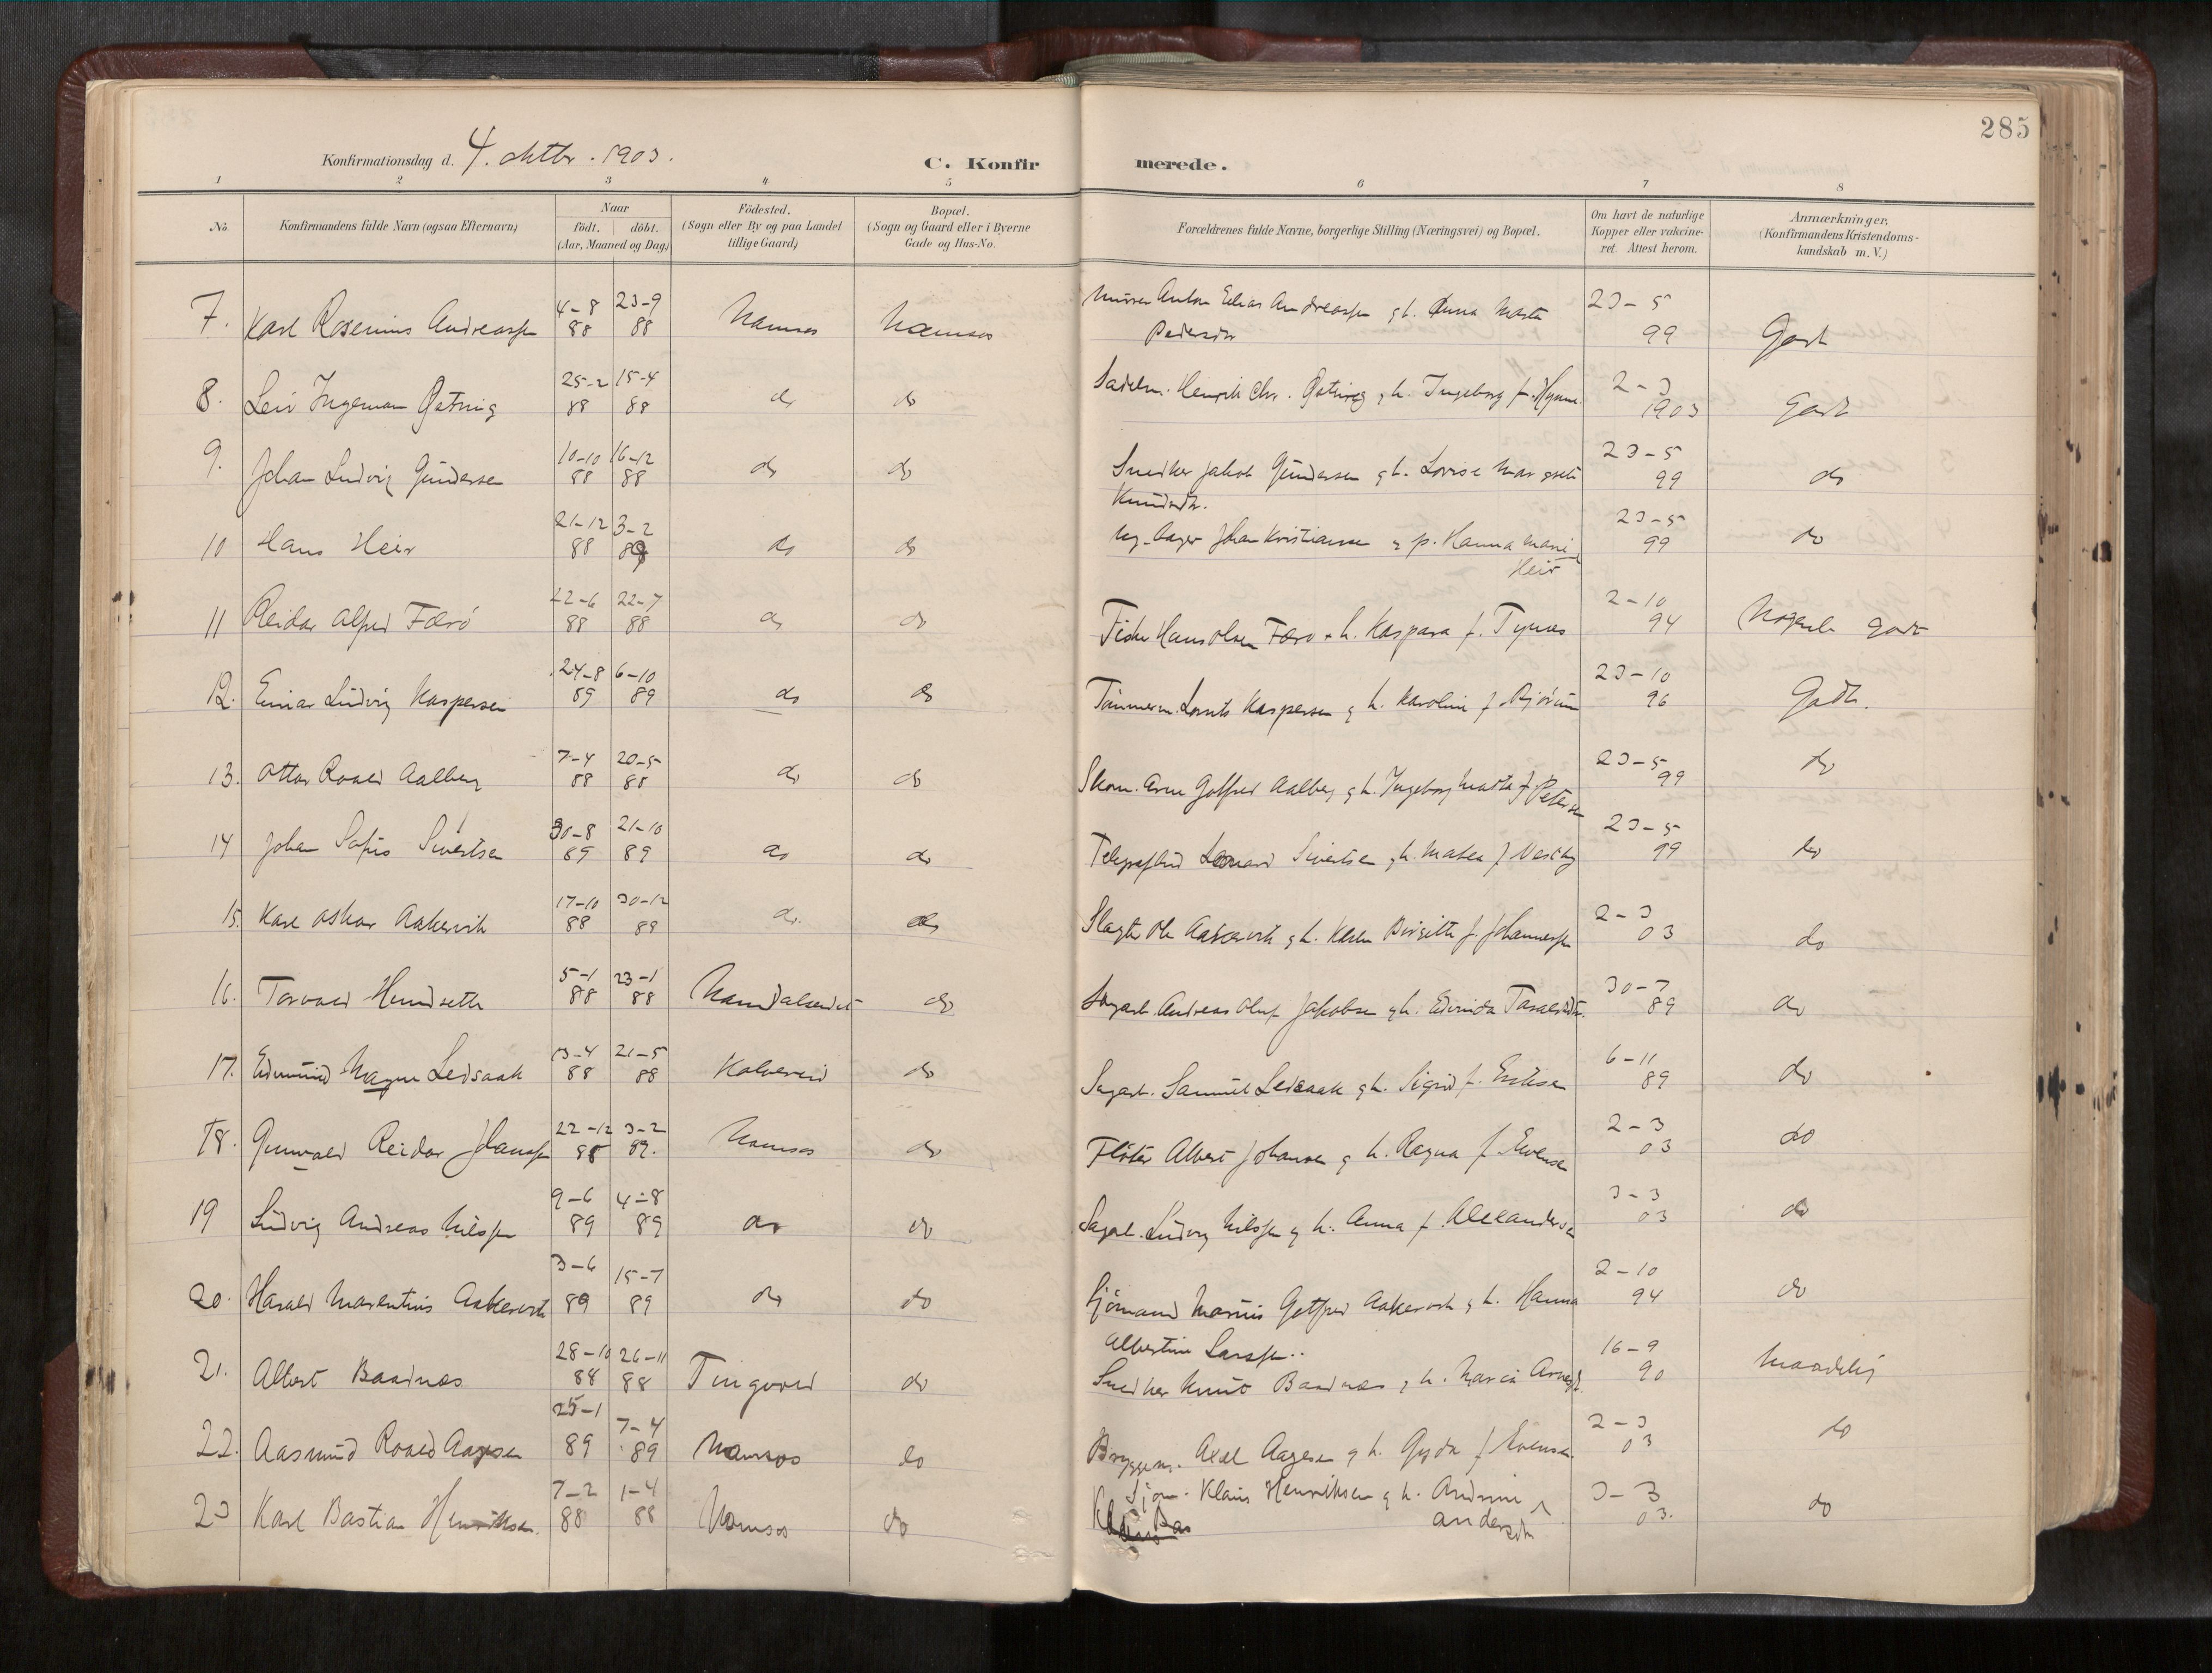 285
Konfirmationsdag d. 4. oktbr. 1903.
C. Konfirmerede.
1 2 3 4 5 6 7 8
No. Konfirmandens fulde Navn (ogsaa Efternavn) Naar födt. döbt. (Aar, Maaned og Dag) Födested. (Sogn eller By og paa Landet tillige Gaard) Bopæl. (Sogn og Gaard eller i Byerne Gade og Hus-No. Forældrenes fulde Navne, borgerlige Stilling (Næringsvei) og Bopæl. Om havt de naturlige Kopper eller vakcineret. Attest herom. Anmærkninger, (Konfirmandens Kristendomskundskab m. V.)
7. Karl Rosenius Andreassen 4-8 88 23-9 88 Namsos Namsos Murer Anton Elias Andreassen g h. Anna Marta Pedersdtr 23-5 99 Godt
8. Leiv Ingeman Qatning 25-2 88 15-4 88 do do Sadelm. Henrik Chr. g h. Ingeborg f. Hynne 2-3 1903 Godt
9. Johan Ludvig Gundersen 10-10 88 16-12 88 do do Snedker Jakob Gundersen g h. Lovise Margrete Knudsdtr. 23-5 99 do
10 Hans Heir 21-12 88 3-2 89 do do Johan Kristiansen g p. Hanna Marie Heir 23-5 99 do
11 Reidar Alfred Færö 22-6 88 22-7 88 do do Fisker Hans Olsen Færö & h. Kaspara f. Tynes 2-10 94 Nogenl. godt
12. Einar Ludvig Kaspersen 24-8 89 6-10 89 do do Tömmerm. Lornts Kaspersen g h. Karoline f. Bjørum 23-10 96 Godt.
13. Ottar Roald Aalberg 7-4 88 20-5 88 do do Skom. Arne Gotfred Aalberg g h. Ingeborg Marta f. Petersen 23-5 99 do
14 Johan Sofus Sivertsen 30-8 89 21-10 89 do do Telegrafbud Leonard Sivertsen g h. Matea f. Vestby 23-5 99 do
15. Karl Oskar Aakervik 17-10 88 30-12 89 do. do Slagter Ole Aakervik g h. Karen Birgitte f. Johannessen 2-3 03 do
16. Torvald Hundseth 5-1 88 23-1 88 Namdalseidet do Sagarb. Andreas Oluf Jakobsen g h. Edvinda Taraldsdtr. 30-7 89 do
17. Edmund Magne Ledsaak 13-4 88 21-5 88 Kolvereid do Sagarb. Samuel Ledsaak g h. Sigrid f. Eriksen 6-11 89 do
18. Gunvald Reidar Johansen 22-12 88 3-2 89. Namsos do Fløter Albert Johansen g h. Ragna f. Evensen 2-3 03 do
19 Ludvig Andreas Nilssen 9-6 89 4-8 89 do do Sagarb. Ludvig Nilssen g h. Anna f. Alexandersen 3-3 03 do
20. Harald Marentius Aakervik 3-6 89 15-7 89 do do Sjömand Marius Gotfred Aakervik g h. Hanna Albertine Larssen.. 2-10 94 do
21. Albert Baadnes 28-10 88 26-11 88 Tingvold do Snedker Knut Baadnes g h. Maria 16-9 90 Maadelig
22. Aasmund Roald Aagesen 25-1 89 7-4 89 Namsos do Bryggem. Axel Aagesen g h. Gyda f. Evensen 2-3 03 do
23 Karl Bastian Henriksen. 7-2 88 1-4 88 Namsos do Sjøm. Klaus Henriksen g h. Andrine Andersdtr 3-3 03. do